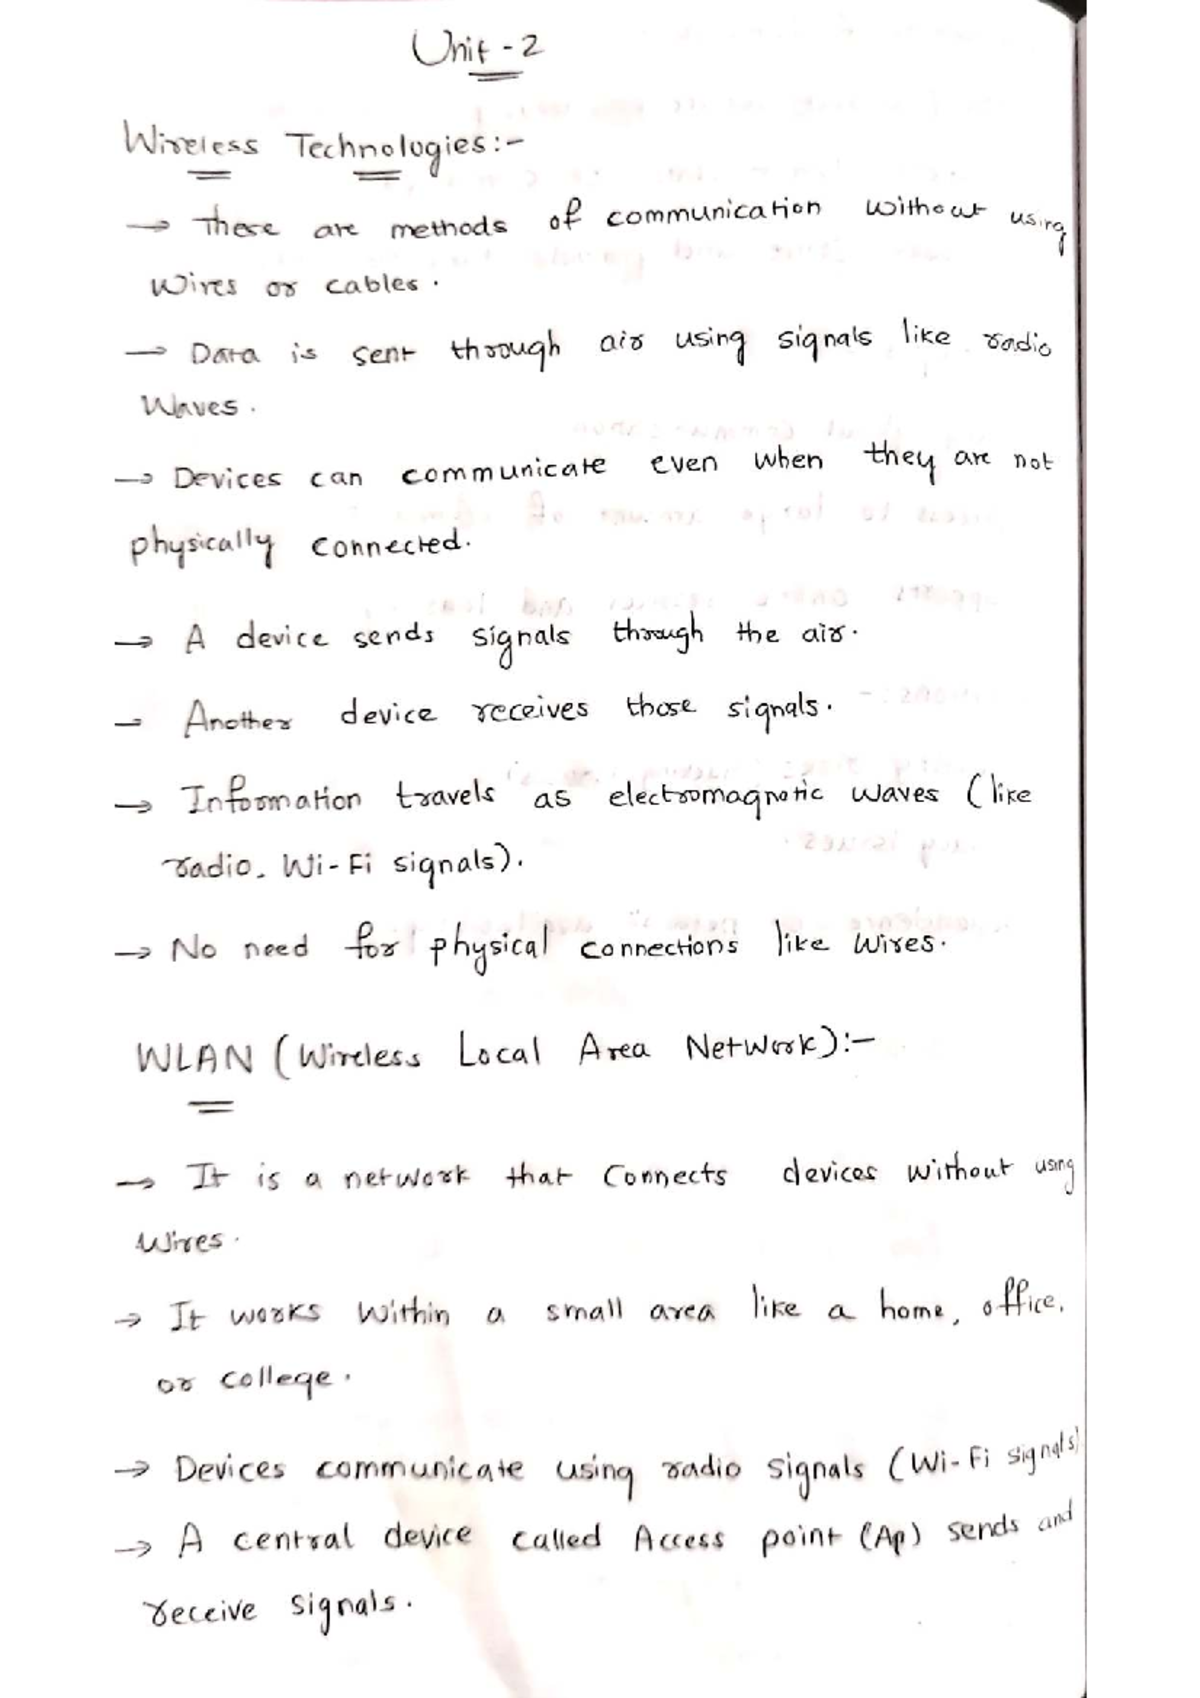 Unit-2
Wireless Technologies:-
→ These are methods of communication without using
wires or cables.
→ Data is sent through air using signals like radio
waves.
→ Devices can communicate even when they are not
physically connected.
→ A device sends signals through the air.
→ Another device receives those signals.
→ Information travels as electromagnetic waves (like
radio, Wi-Fi signals).
→ No need for physical connections like wires.
WLAN (Wireless Local Area Network):-
→ It is a network that connects devices without using
wires.
→ It works within a small area like a home, office,
or college.
→ Devices communicate using radio signals (Wi-Fi signals)
→ A central device called Access point (AP) sends and
receive signals.